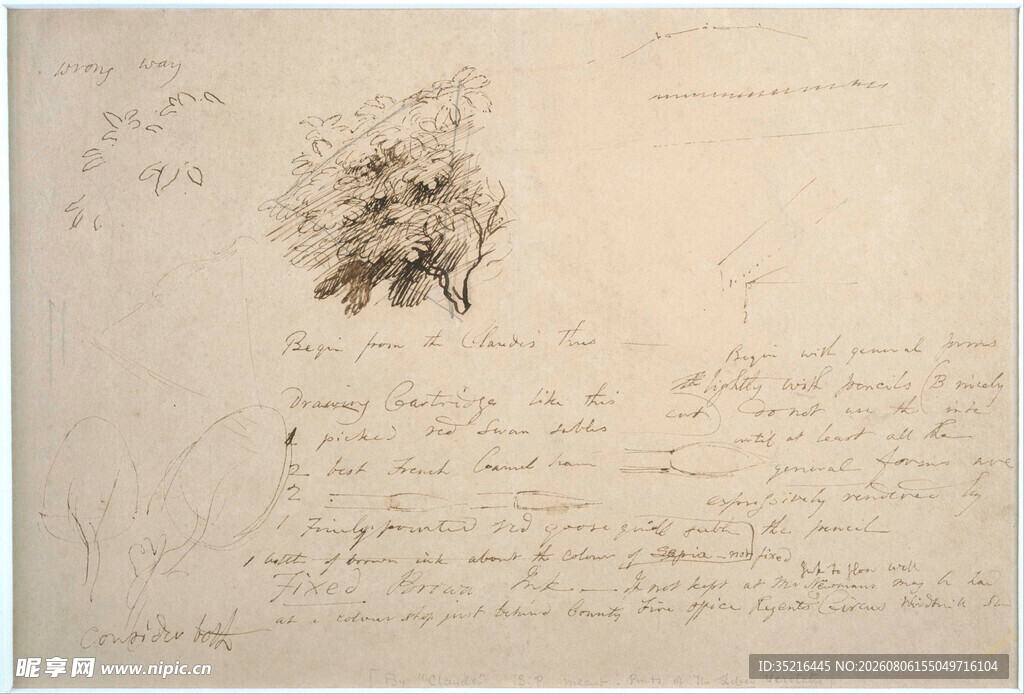 wrong way
Begin from the Claudes Trees
Begin with general forms
lightly with pencils (B nicely
Drawing Cartridge like this
cut) do not use the ink
picked red Swan sables
until at least all the
2 best French Camel hair
general forms are
2
expressively rendered by
1 Finely pointed red goose quill sable
the pencil
1 bottle of brown ink about the colour of Sepia - non fixed
Ink to flow well
Fixed Brown Ink - If not kept at Mr Newmans may be had
at a colour shop just behind County Fire office Regents Circus Windmill St
Consider both
[By "Claude" S.P. meant Prints of the Liber Veritatis]
昵享网 www.nipic.cn
ID:35216445 NO:20260806155049716104